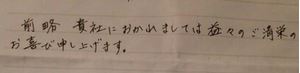 前略 貴社におかれましては益々のご清栄の
お喜び申し上げます。